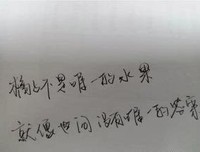 橘子不是唯一的水果
就像世间没有唯一的答案